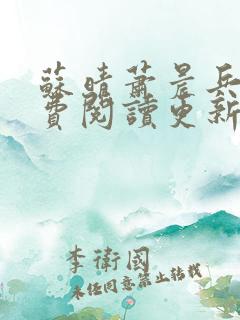 蘇晴蕭晨兵
費閱讀更新
李衛國
未經同意禁止轉載